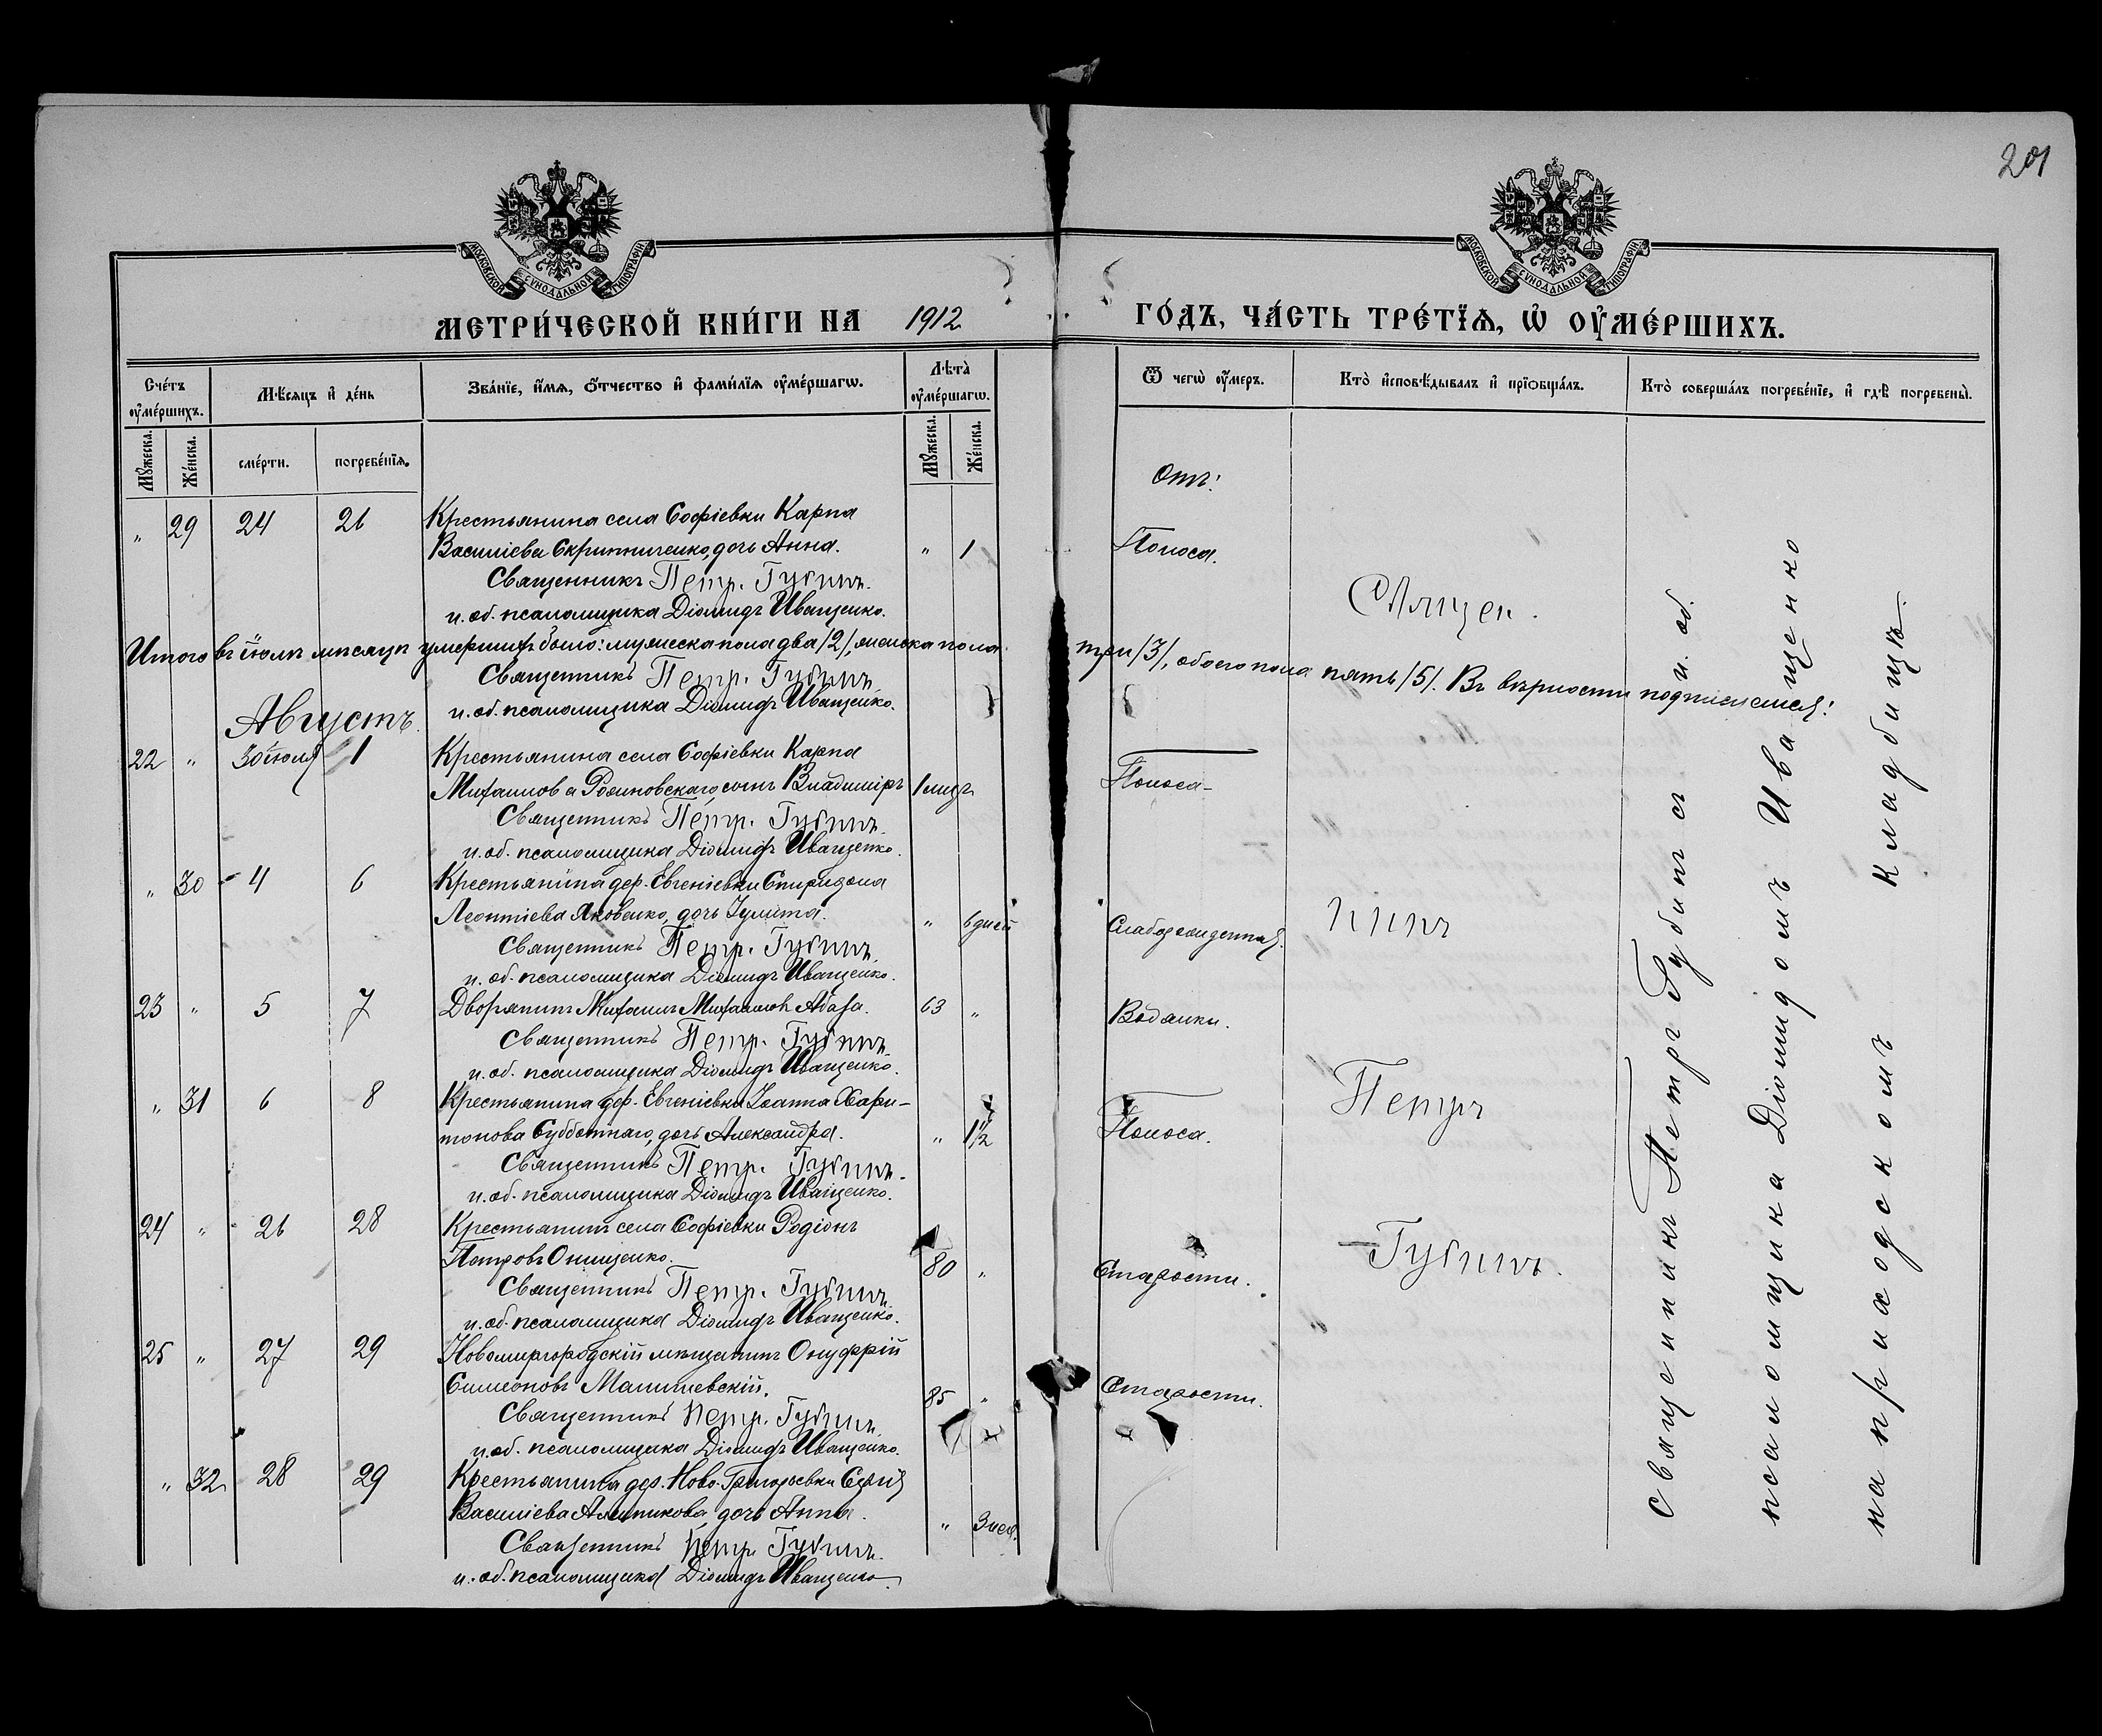 201
МОСКОВСКОЙ СѴНОДАЛЬНОЙ ТИПОГРАФІИ
МОСКОВСКОЙ СѴНОДАЛЬНОЙ ТИПОГРАФІИ
МЕТРИ́ЧЕСКОЙ КНИ́ГИ НА 1912 ГО́ДЪ, ЧА́СТЬ ТРЕ́ТІѦ, Ѡ҆ ОУ҆МЕ́РШИХЪ.
Сче́тъ оу҆ме́ршихъ.
Мѣ́сяцъ и҆ де́нь
Зва́нїе, и҆́мѧ, ѻ҆́тчество и҆ фами́лїѧ оу҆ме́ршагѡ.
Лѣта̀ оу҆ме́ршагѡ.
Ѿ чегѡ̀ оу҆́меръ.
Кто̀ и҆сповѣ́дывалъ и҆ прїѻбща́лъ.
Кто̀ соверша́лъ погребе́нїе, и҆ гдѣ̀ погребены̀.
Мꙋ́жеска.
Же́нска.
сме́рти.
погребе́нїѧ.
Мꙋ́жеска.
Же́нска.
Отъ:
" 29 24 26 Крестьянина села Софіевки Карпа
Василіева Скрипниченко, дочь Анна. " 1 Поноса.
Священникъ Петръ Губинъ.
и. об. псаломщика Діомидъ Иващенко.
Итого въ іюлѣ мѣсяцѣ умершихъ было: мужеска пола два /2/, женска пола три /3/, обоего пола пять /5/. Въ вѣрности подписуемся:
Священникъ Петръ Губинъ.
и. об. псаломщика Діомидъ Иващенко.
Августъ.
22 " 30 іюля 1 Крестьянина села Софіевки Карпа
Михаилова Розиновскаго, сынъ Владиміръ 1 мѣц. Поноса
Священникъ Петръ Губинъ.
и. об. псаломщика Діомидъ Иващенко.
" 30 4 6 Крестьянина дер. Евгеніевки Спиридона
Леонтіева Яковенко, дочь Іулита. " 6 дней Слаборожденная.
Священникъ Петръ Губинъ.
и. об. псаломщика Діомидъ Иващенко.
23 " 5 7 Дворянинъ Михаилъ Михаиловъ Абаза. 63 " Водянки.
Священникъ Петръ Губинъ.
и. об. псаломщика Діомидъ Иващенко.
" 31 6 8 Крестьянина дер. Евгеніевки Іоанна Хари-
тонова Субботняго, дочь Александра. " 1 1/2 Поноса.
Священникъ Петръ Губинъ.
и. об. псаломщика Діомидъ Иващенко.
24 " 26 28 Крестьянинъ села Софіевки Родіонъ
Петровъ Онищенко. 80 " Старости.
Священникъ Петръ Губинъ.
и. об. псаломщика Діомидъ Иващенко.
25 " 27 29 Новомиргородскій мѣщанинъ Онуфрій
Симеоновъ Малишевскій. 85 " Старости.
Священникъ Петръ Губинъ.
и. об. псаломщика Діомидъ Иващенко.
" 32 28 29 Крестьянина дер. Ново-Григорьевки
Василіева Алейникова, дочь Анна. " 3 нед.
Священникъ Петръ Губинъ.
и. об. псаломщика Діомидъ Иващенко.
Священ
никъ
Петръ
Губинъ.
Священникъ Петръ Губинъ съ и. об.
псаломщика Діомидомъ Иващенко
на приходскомъ кладбищѣ.